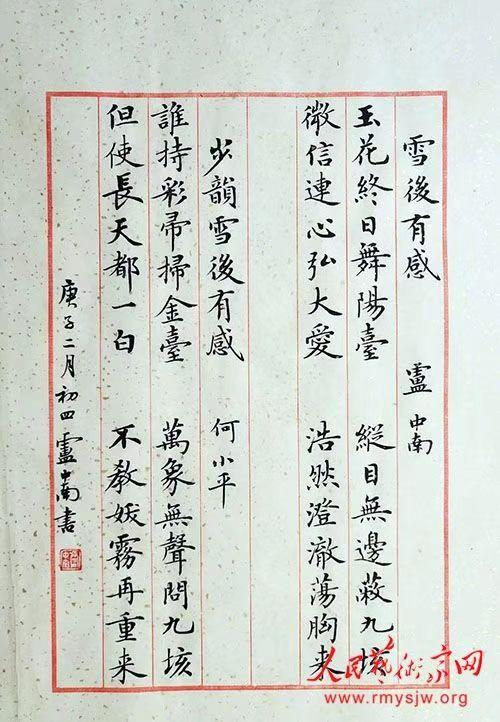 雪後有感 盧中南
玉花終日舞陽臺 縱目無邊蔽九垓
微信連心弘大愛 浩然澄澈蕩胸来
步韻雪後有感 何小平
誰持彩帚掃金臺 萬象無聲問九垓
但使長天都一白 不教妖霧再重来
庚子二月初四盧中南書
人民艺术家网
www.rmysjw.org